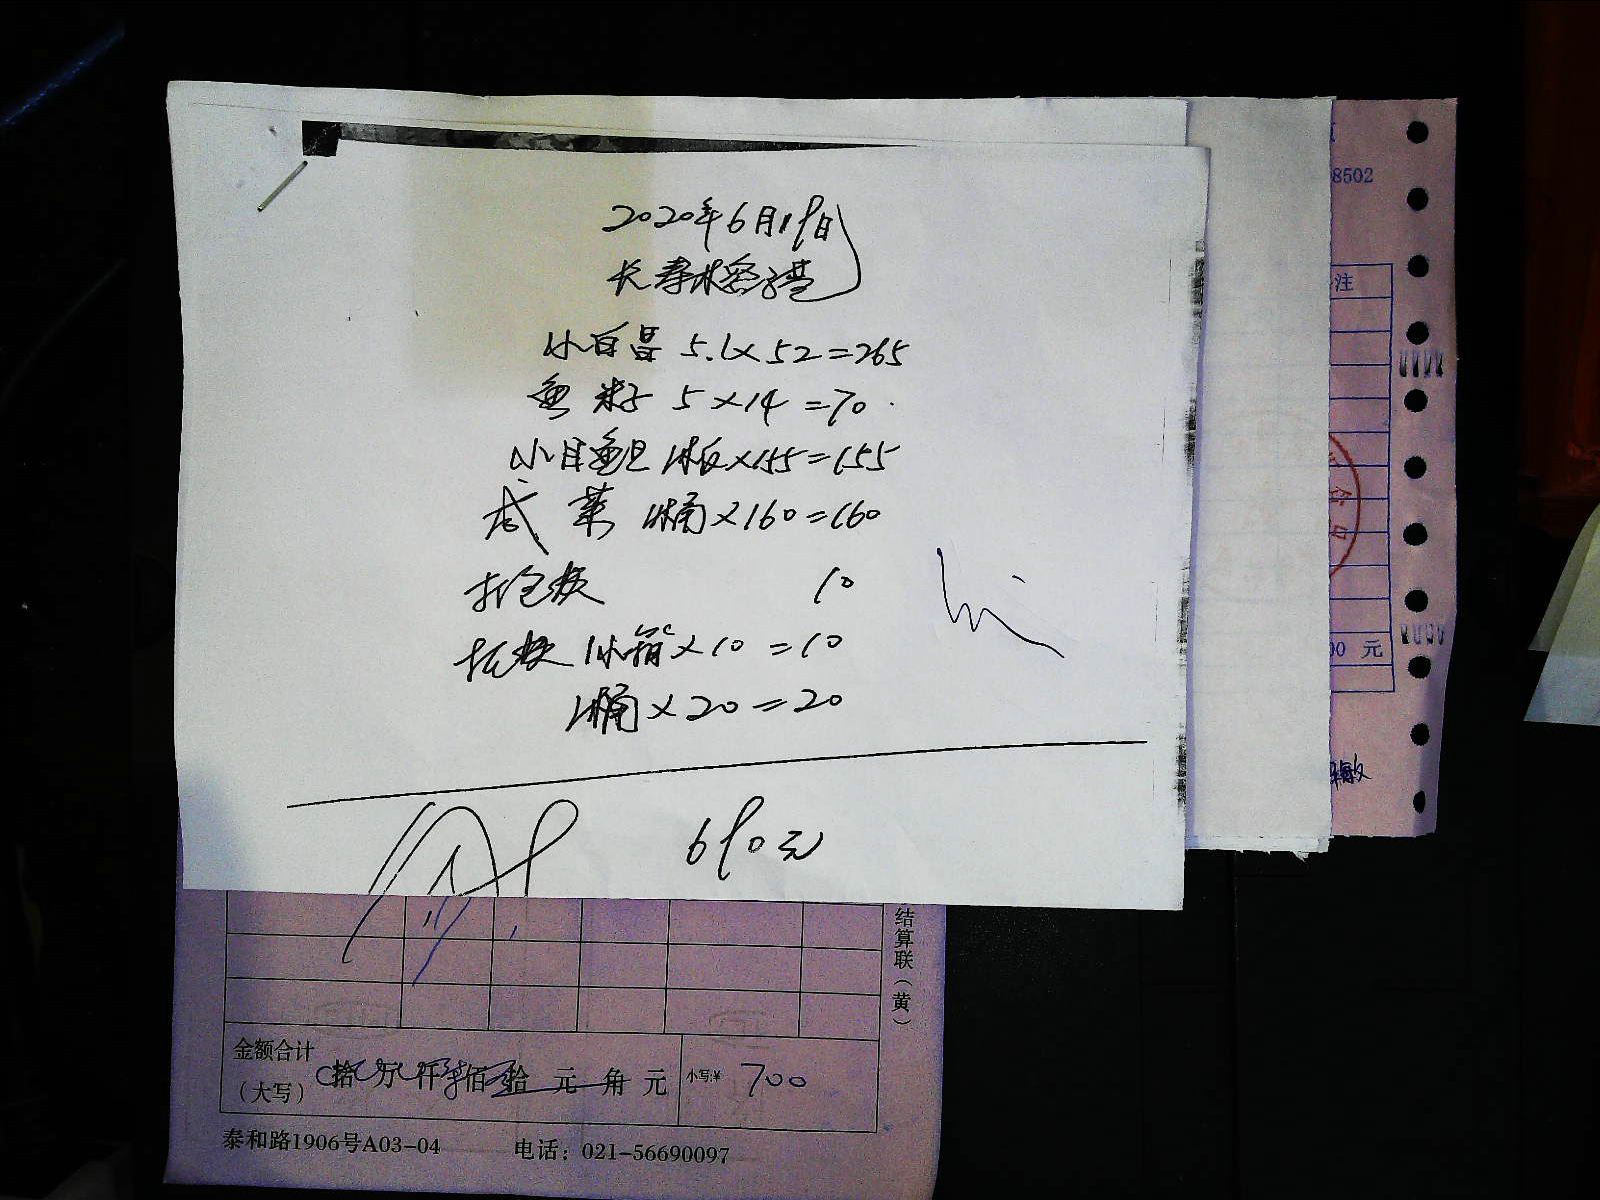 2020年6月19日
小百昌 5.1×52=265
鱼籽 5×14=70
小目鱼旦 1板×155=155
咸菜 1桶×160=160
打包费 10
托费 1小箱×10=10
1桶×20=20
690元
8502
注
00 元
敏
结算联(黄)
金额合计
(大写) 拾 万 仟 佰 拾 元 角 元 小写:¥ 700
泰和路1906号A03-04 电话: 021-56690097